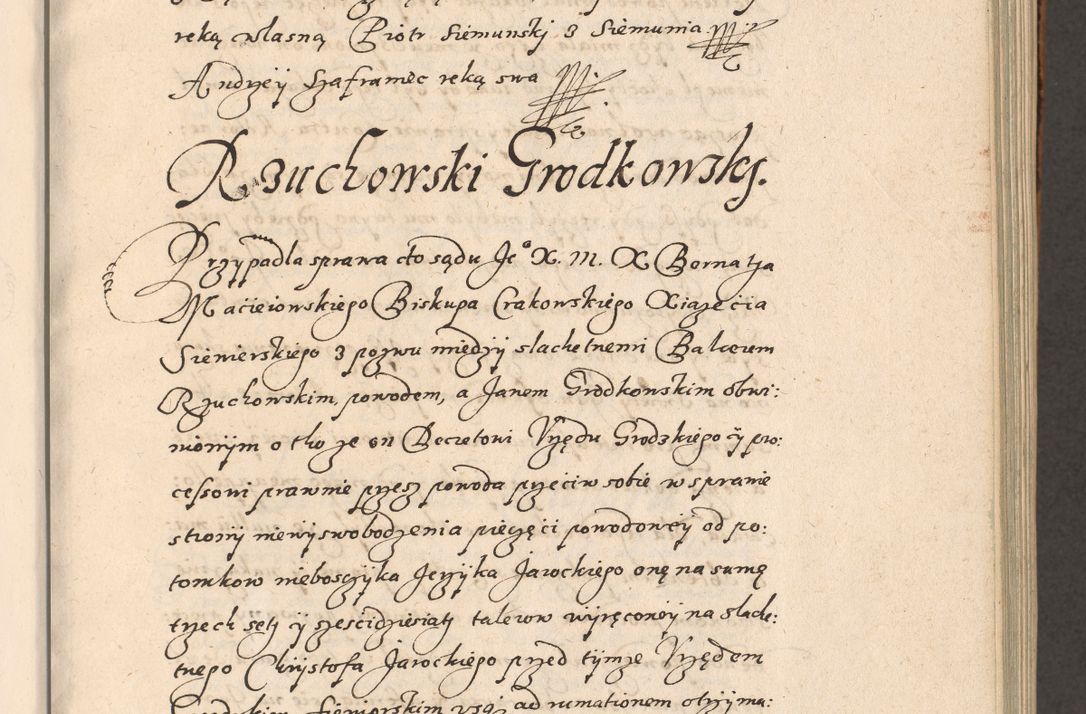 reką własną Piotr Siemunskj z Siemunia
Andrzeÿ Szafraniec reką swa
Rzuchowski Grodkowskj.
Przÿpadla sprawa do sądu Je° X. M. X Bernatha
Macieiowskiego Biskupa Crakowskiego Xiązęcia
Siewierskiego z pozwu międzÿ slachetnemi Balcerem
Rzuchowskim, powodem, a Janem Grodkowskim obwi:
nionÿm o tho ze on Decretowi Vrzędu Grodzkiego ÿ pro:
cessowi prawnie przesz powoda przeciw sobie w sprawie
stronÿ niewÿswobodzenia pieczęci powodoweÿ od po:
tomkow nieboszczÿka Jerzÿka Jarockiego onę na sumę
trzech sętÿ ÿ szescidziesiątÿ talerow wÿręczoneÿ na slache:
tnego Chrÿstofa Jarockiego przed tÿmze Vrzędem
Siewierskim ad rumationem otrzÿma: